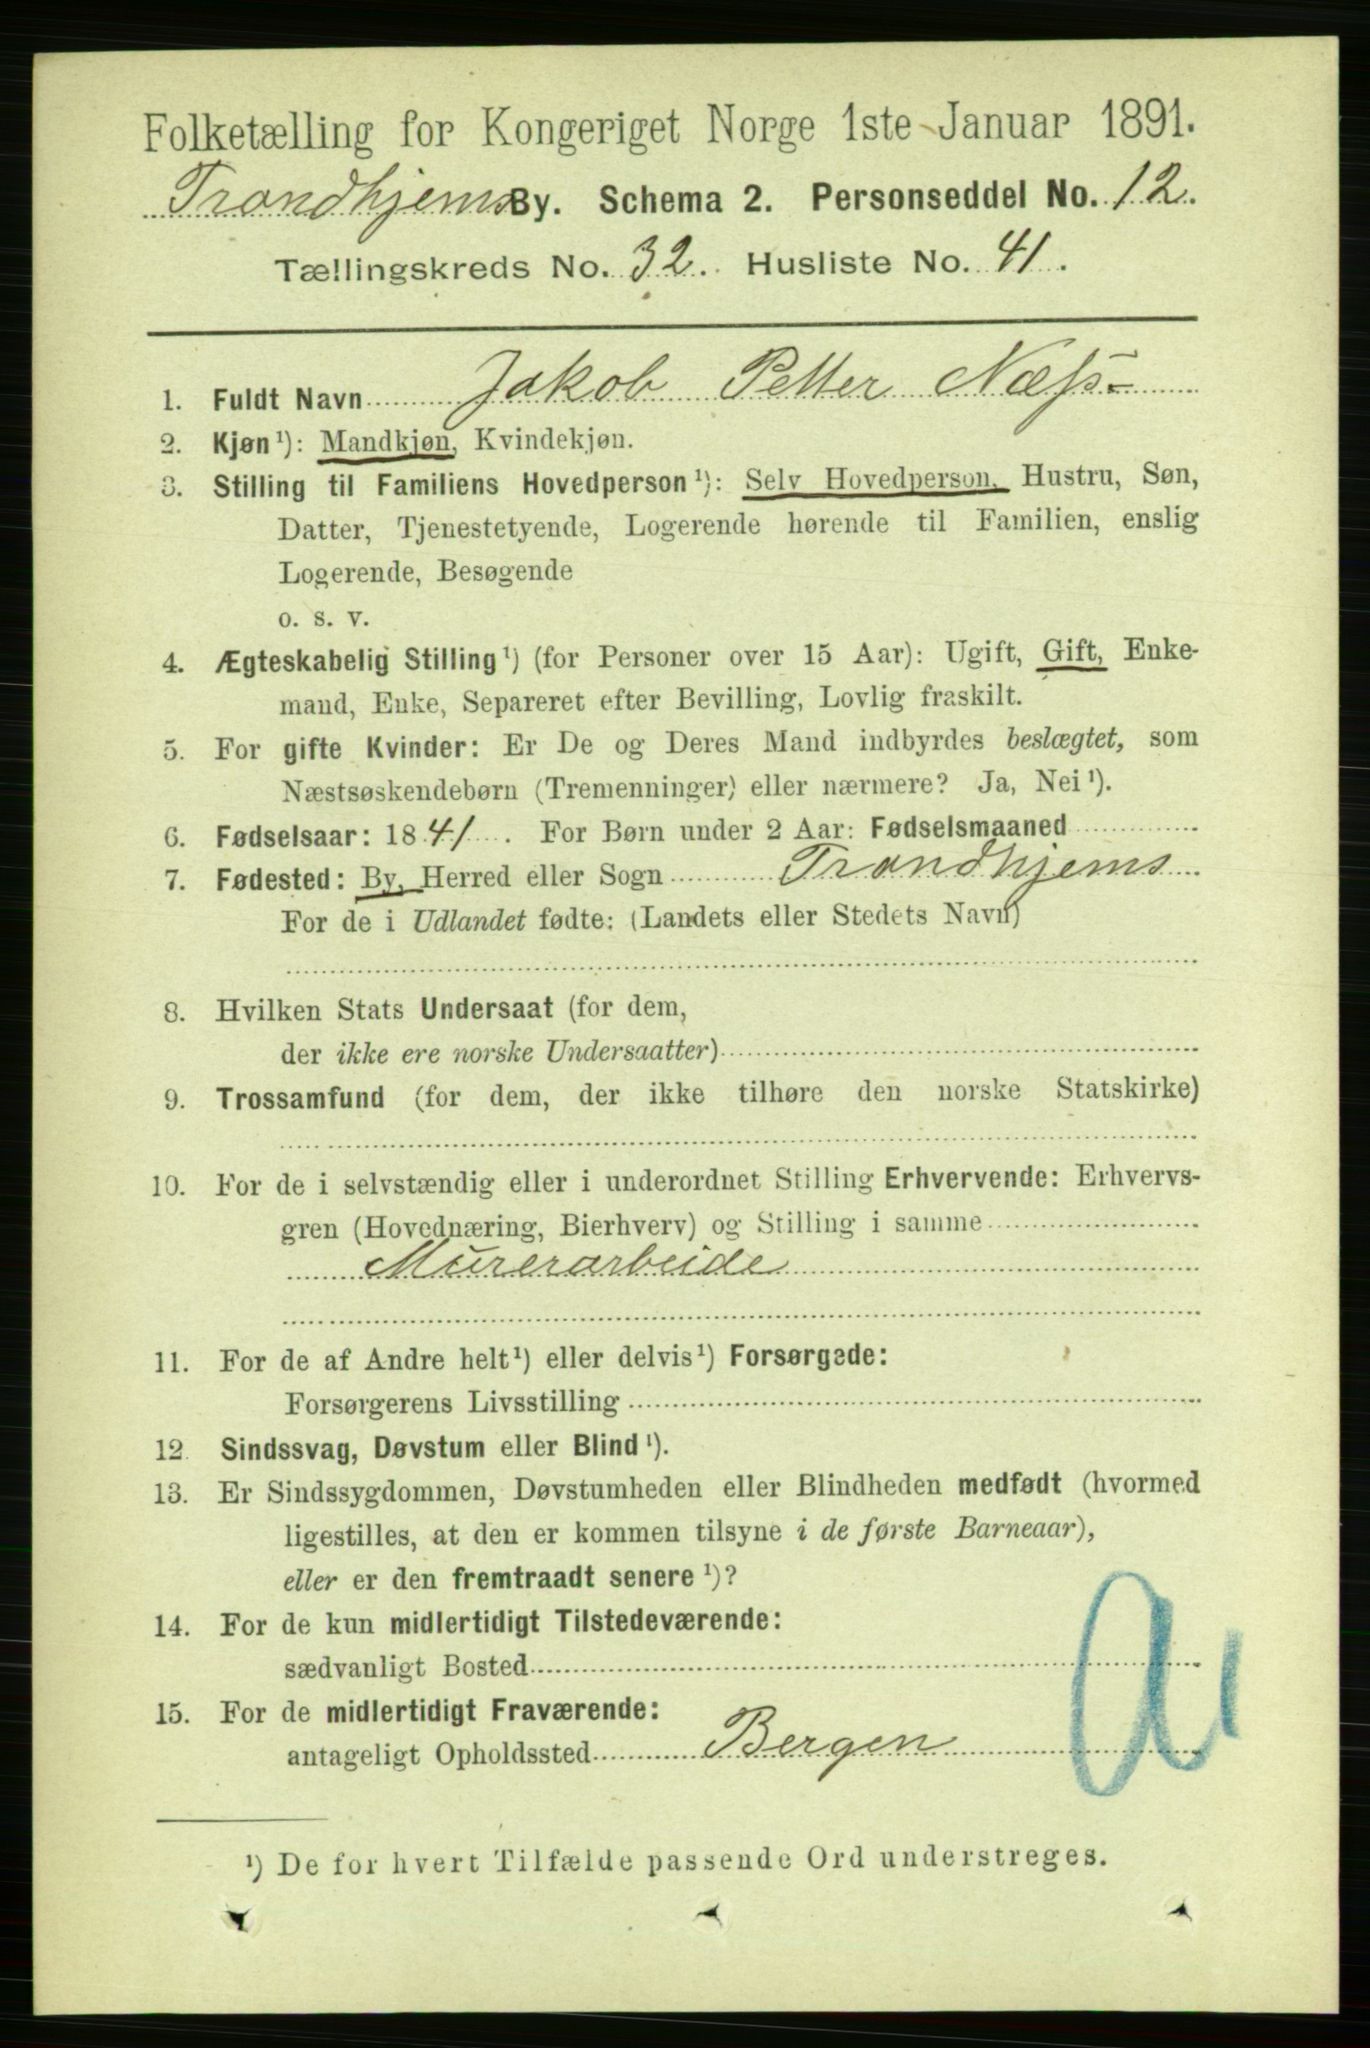 Folketælling for Kongeriget Norge 1ste Januar 1891.
Trondhjems By. Schema 2. Personseddel No. 12.
Tællingskreds No. 32. Husliste No. 41.
1. Fuldt Navn Jakob Petter Næss
2. Kjøn¹): Mandkjøn, Kvindekjøn.
3. Stilling til Familiens Hovedperson¹): Selv Hovedperson, Hustru, Søn,
Datter, Tjenestetyende, Logerende hørende til Familien, enslig
Logerende, Besøgende
o. s. v.
4. Ægteskabelig Stilling¹) (for Personer over 15 Aar): Ugift, Gift, Enke-
mand, Enke, Separeret efter Bevilling, Lovlig fraskilt.
5. For gifte Kvinder: Er De og Deres Mand indbyrdes beslægtet, som
Næstsøskendebørn (Tremenninger) eller nærmere? Ja, Nei¹).
6. Fødselsaar: 1841. For Børn under 2 Aar: Fødselsmaaned
7. Fødested: By, Herred eller Sogn Trondhjems
For de i Udlandet fødte: (Landets eller Stedets Navn)
8. Hvilken Stats Undersaat (for dem,
der ikke ere norske Undersaatter)
9. Trossamfund (for dem, der ikke tilhøre den norske Statskirke)
10. For de i selvstændig eller i underordnet Stilling Erhvervende: Erhvervs-
gren (Hovednæring, Bierhverv) og Stilling i samme
Murerarbeide
11. For de af Andre helt¹) eller delvis¹) Forsørgede:
Forsørgerens Livsstilling
12. Sindssvag, Døvstum eller Blind¹).
13. Er Sindssygdommen, Døvstumheden eller Blindheden medfødt (hvormed
ligestilles, at den er kommen tilsyne i de første Barneaar),
eller er den fremtraadt senere¹)?
14. For de kun midlertidigt Tilstedeværende:
sædvanligt Bosted
15. For de midlertidigt Fraværende:
antageligt Opholdssted Bergen
¹) De for hvert Tilfælde passende Ord understreges.